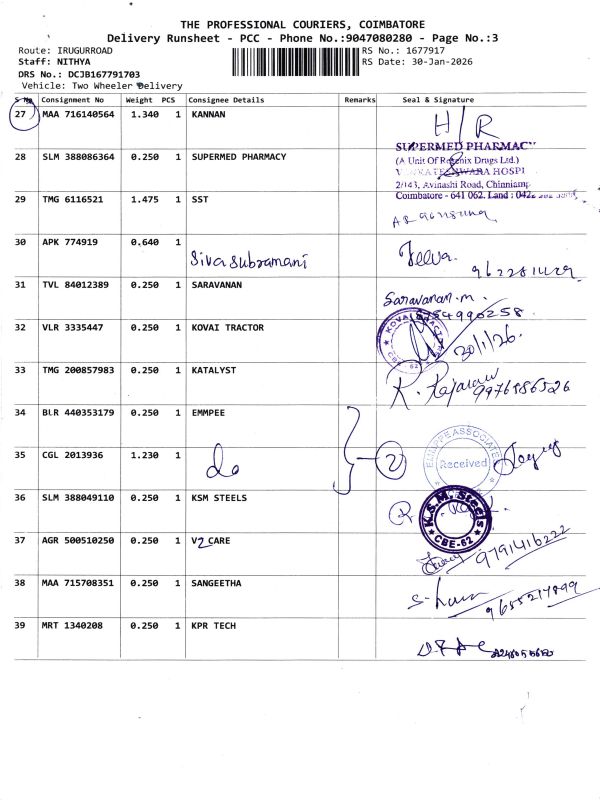 THE PROFESSIONAL COURIERS, COIMBATORE
Delivery Runsheet - PCC - Phone No.:9047080280 - Page No.:3
Route: IRUGURROAD RS No.: 1677917
Staff: NITHYA RS Date: 30-Jan-2026
DRS No.: DCJB167791703
Vehicle: Two Wheeler Delivery
S No Consignment No Weight PCS Consignee Details Remarks Seal & Signature
27 MAA 716140564 1.340 1 KANNAN H/R
28 SLM 388086364 0.250 1 SUPERMED PHARMACY
SUPERMED PHARMACY
(A Unit Of Regenix Drugs Ltd.)
HOSPI
2/143, Avinashi Road, Chinniamp
Coimbatore - 641 062. Land : 0422
29 TMG 6116521 1.475 1 SST
30 APK 774919 0.640 1 Siva Subramani
31 TVL 84012389 0.250 1 SARAVANAN Saravanan.m.
32 VLR 3335447 0.250 1 KOVAI TRACTOR
KOVAI TRACTOR CBE 62
30/1/26.
33 TMG 200857983 0.250 1 KATALYST
9976886526
34 BLR 440353179 0.250 1 EMMPEE
35 CGL 2013936 1.230 1 do 2
EMMPPE ASSOCIATES
Received
36 SLM 388049110 0.250 1 KSM STEELS
K.S.M. Steels
CBE-62
37 AGR 500510250 0.250 1 V2 CARE 9791416222
38 MAA 715708351 0.250 1 SANGEETHA 9655217899
39 MRT 1340208 0.250 1 KPR TECH